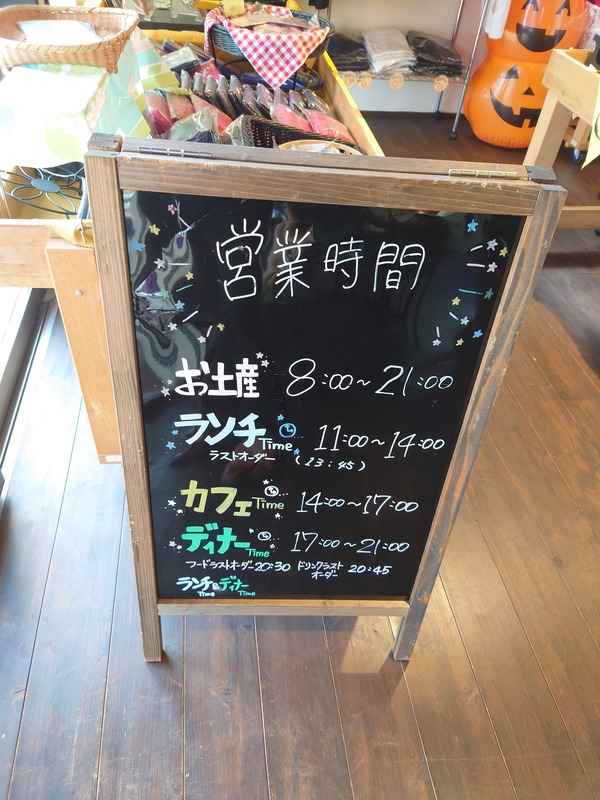 営業時間
お土産 8:00~21:00
ランチTime 11:00~14:00
ラストオーダー (13:45)
カフェTime 14:00~17:00
ディナーTime 17:00~21:00
フードラストオーダー20:30 ドリンクラストオーダー 20:45
ランチTime&ディナーTime